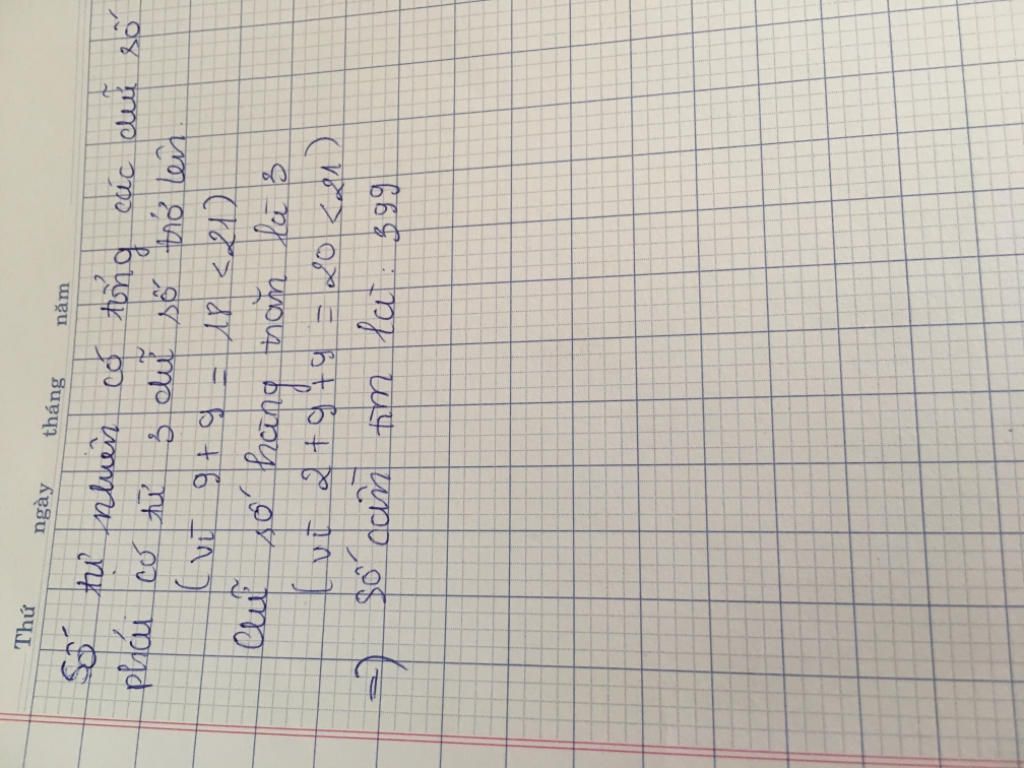 Thứ ngày tháng năm
Số tự nhiên có tổng các chữ số
phải có từ 3 chữ số trở lên.
( vì 9 + 9 = 18 < 21 )
Chữ số hàng trăm là 3
( vì 2 + 9 + 9 = 20 < 21 )
=> Số cần tìm là : 399